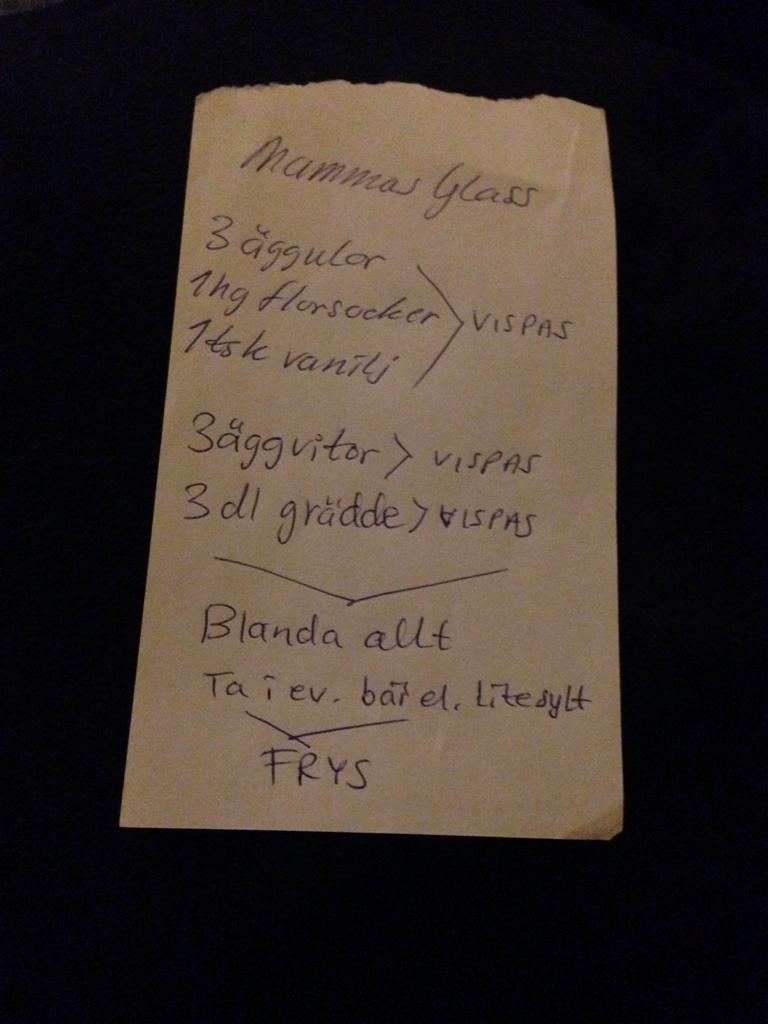 Mammas Glass
3 äggulor
1 hg florsocker > VISPAS
1 tsk vanilj
3 äggvitor > VISPAS
3 dl grädde > VISPAS
Blanda allt
Ta i ev. bär el. lite sylt
FRYS